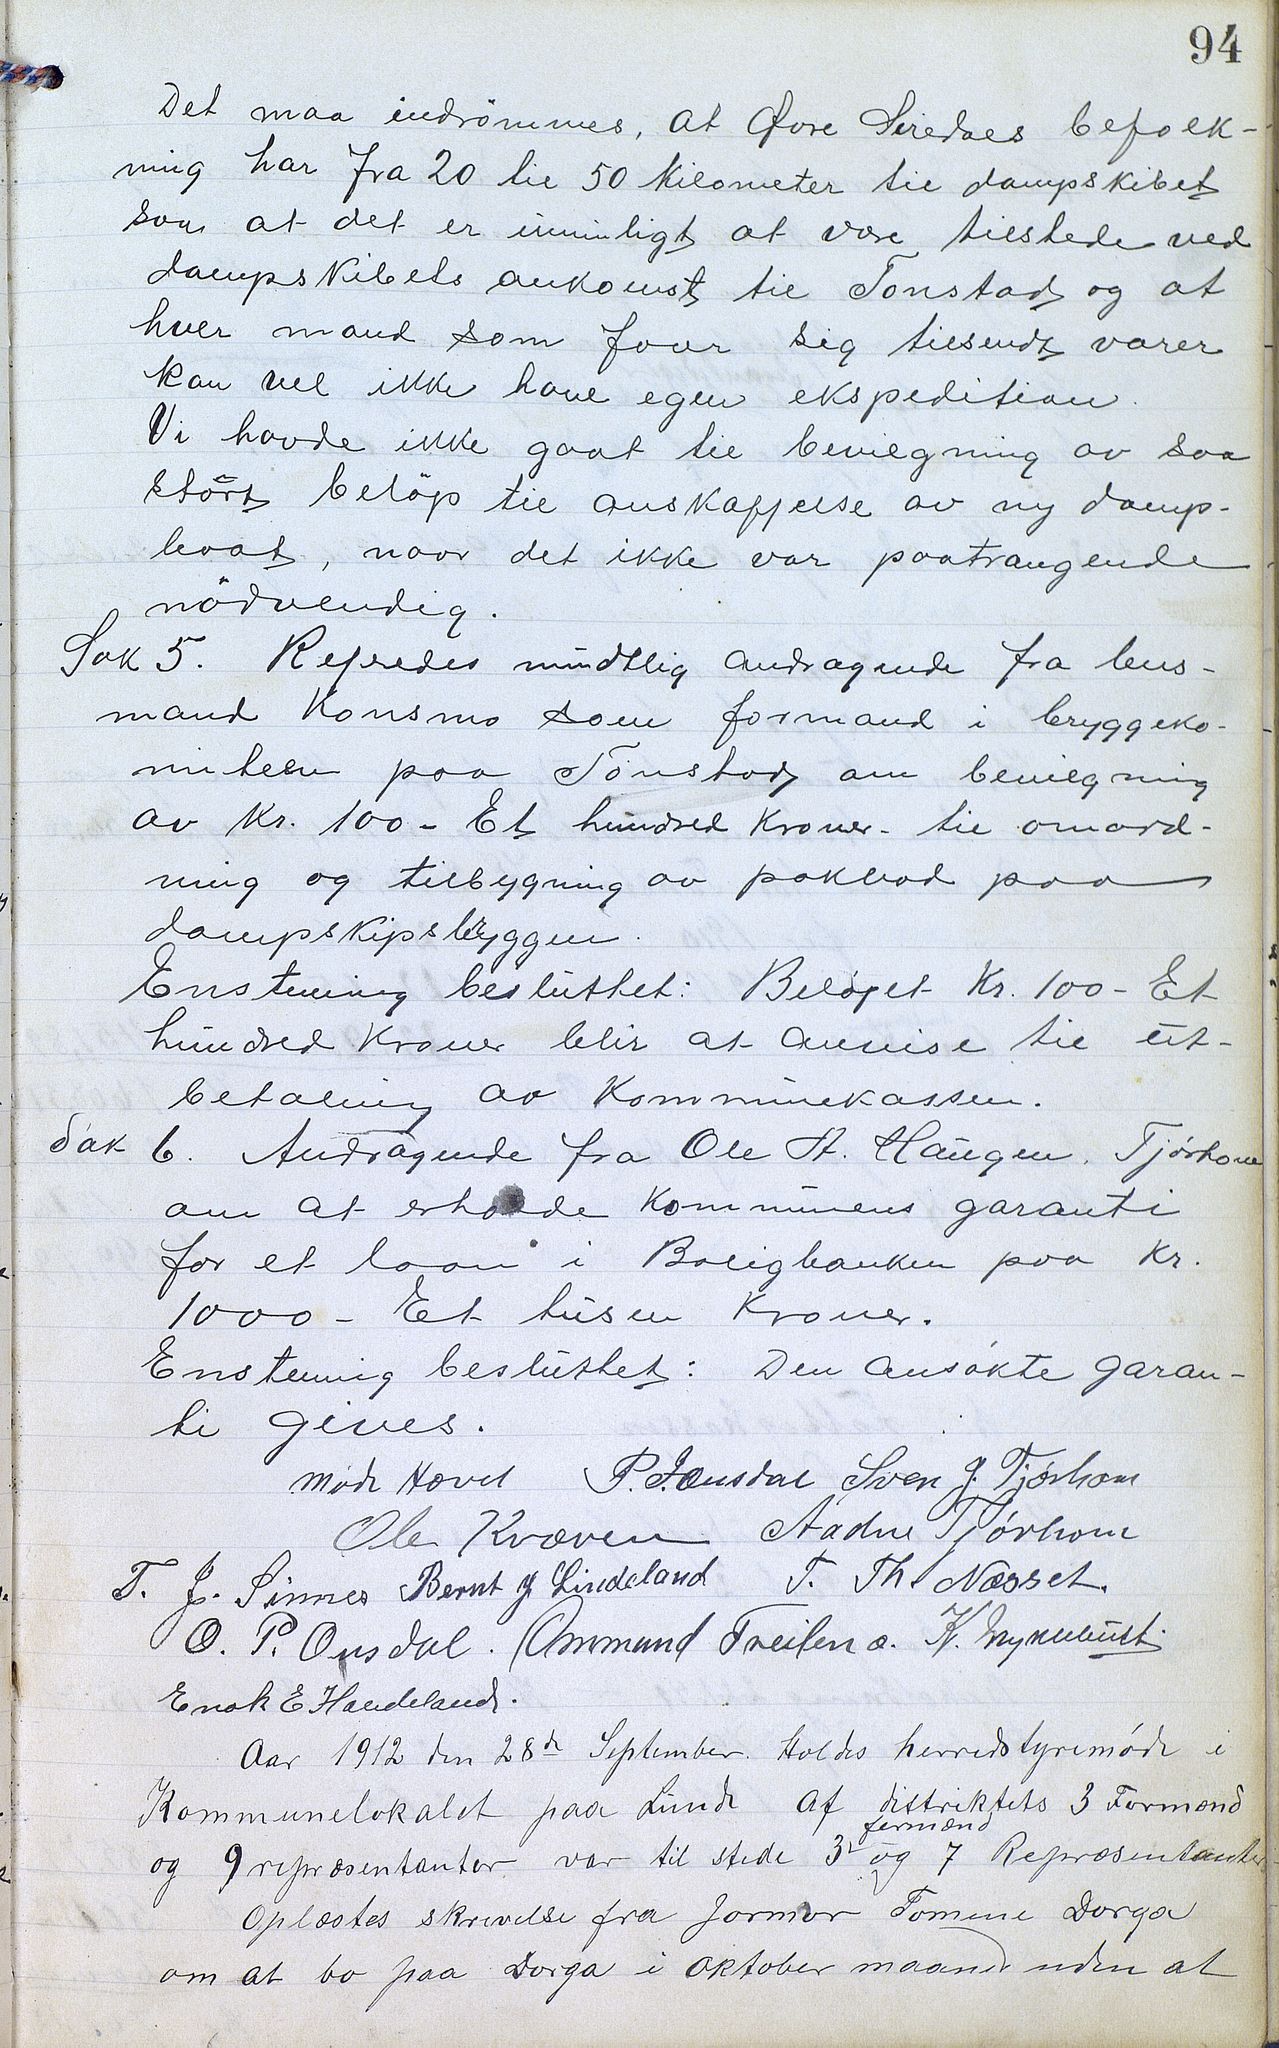 94
Det maa indrömmes, at Øvre Siredals befolk-
ning har fra 20 til 50 kilometer til dampskibet
saa at det er uimuligt at være tilstede ved
dampskibets ankomst til Tonstad og at
hver mand som faar sig tilsendt varer
kan vel ikke have egen ekspedition.
Vi havde ikke gaat til bevilgning av saa
stort beløp til anskaffelse av ny damp-
baat, naar det ikke var paatrængende
nödvendig.
Sak 5. Refredes mündtlig andragende fra lens-
mand Konsmo som formand i bryggeko-
miteen paa Tonstad om bevilgning
av Kr. 100 - Et hundred Kroner - til omord-
ning og tilbygning av pakbod paa
dampskipsbryggen.
Enstemmig besluttet: Beløpet Kr. 100 - Et
hundred Kroner blir at anvise til ut-
betaling av Kommunekassen.
Sak 6. Andragende fra Ole A. Haugen, Tjørhom
om at erholde kommunens garanti
for et laan i Boligbanken paa Kr.
1000 - Et tusen Kroner.
Enstemmig besluttet: Den ansökte garan-
ti gives.
Møde Hævet P. J. Ousdal Sven J. Tjørhom
Ole Kvæven Aadne Tjørhom
T. J. Sinnes Bernt J Lindeland T. Th. Næsset.
O. P. Ousdal. Ommund Treiland. K.
Enok E Haudeland.
Aar 1912 den 28de September Holdes herredstyremøde i
Kommunelokalet paa Lunde Af distriktets 3 Formænd
og 9 repræsentanter var til stede 3 formænd og 7 Repræsentanter
Oplæstes skrivelse fra Jormor Tomine Dorga
om at bo paa Dorga i oktober maaned uden at